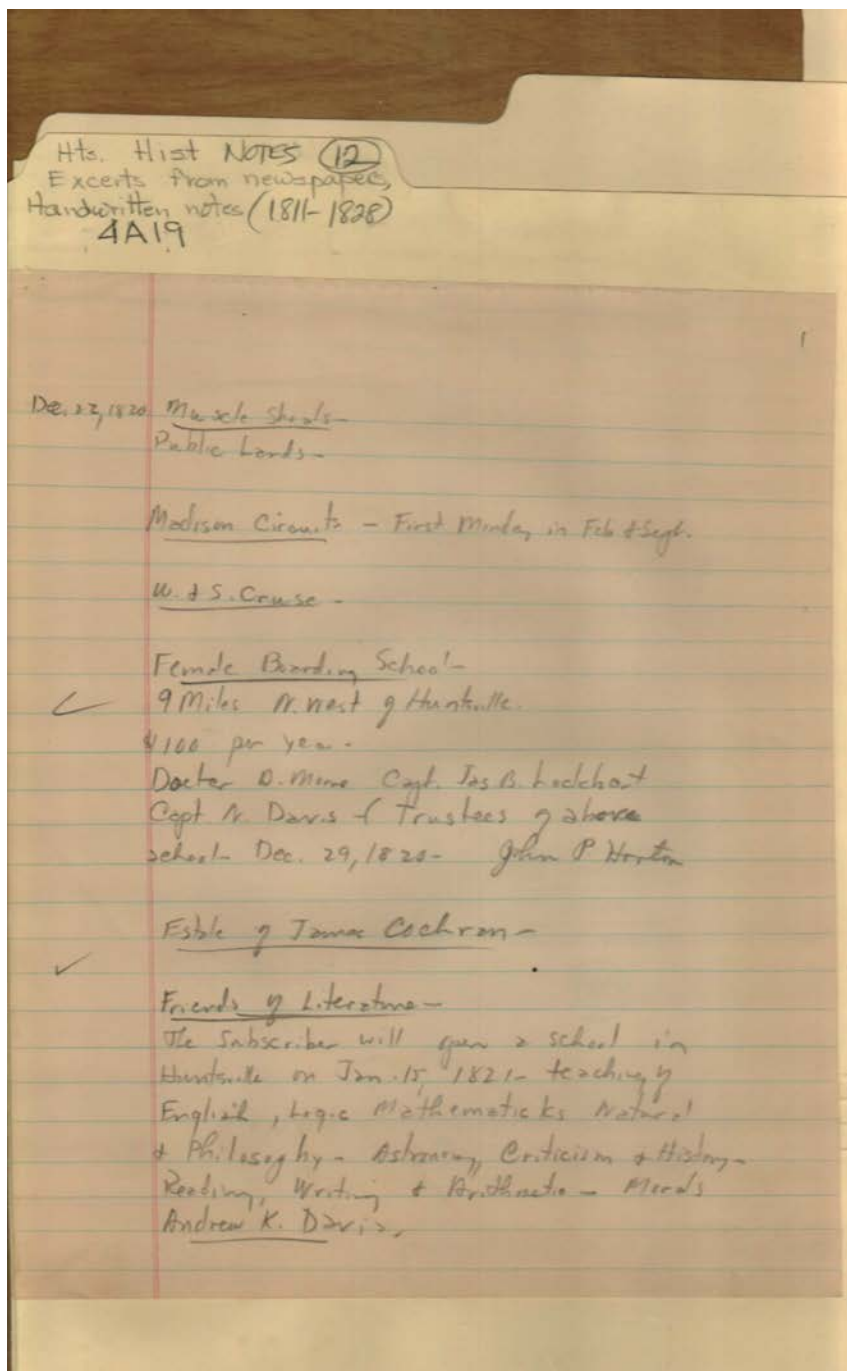 Hts. Hist NOTES 12
Excerts from newspapers,
Handwritten notes (1811-1828)
4A19
1
Dec. 22, 1820 Muscle Shoals-
Public Lands-
Madison Circuits - First Monday in Feb & Sept.
W. & S. Cruse -
Female Boarding School-
9 Miles N. West of Huntsville.
$100 per year.
Docter D. Moore Capt. Jas B. Lockhart
Capt N. Davis Trustees of above
school- Dec. 29, 1820- John P. Horton
Estate of James Cochran-
Friends of Literature-
The Subscriber will open a school in
Huntsville on Jan. 15, 1821- teaching of
English, Logic Mathematicks Natural
& Philosophy- Astronomy, Criticism & History-
Reading, Writing & Arithmetic- Morals
Andrew K. Davis,